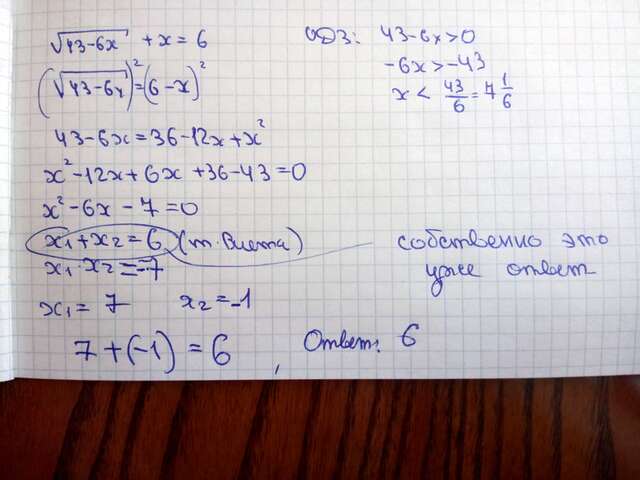 √43-6x + x = 6
(√43-6x)² = (6-x)²
43-6x = 36-12x+x²
x²-12x+6x+36-43=0
x²-6x-7=0
x₁+x₂=6 (т. Виета)
x₁·x₂=-7
x₁= 7 x₂=-1
7+(-1) = 6, Ответ: 6
ОДЗ: 43-6x>0
-6x>-43
x < 43/6 = 7 1/6
собственно это
уже ответ